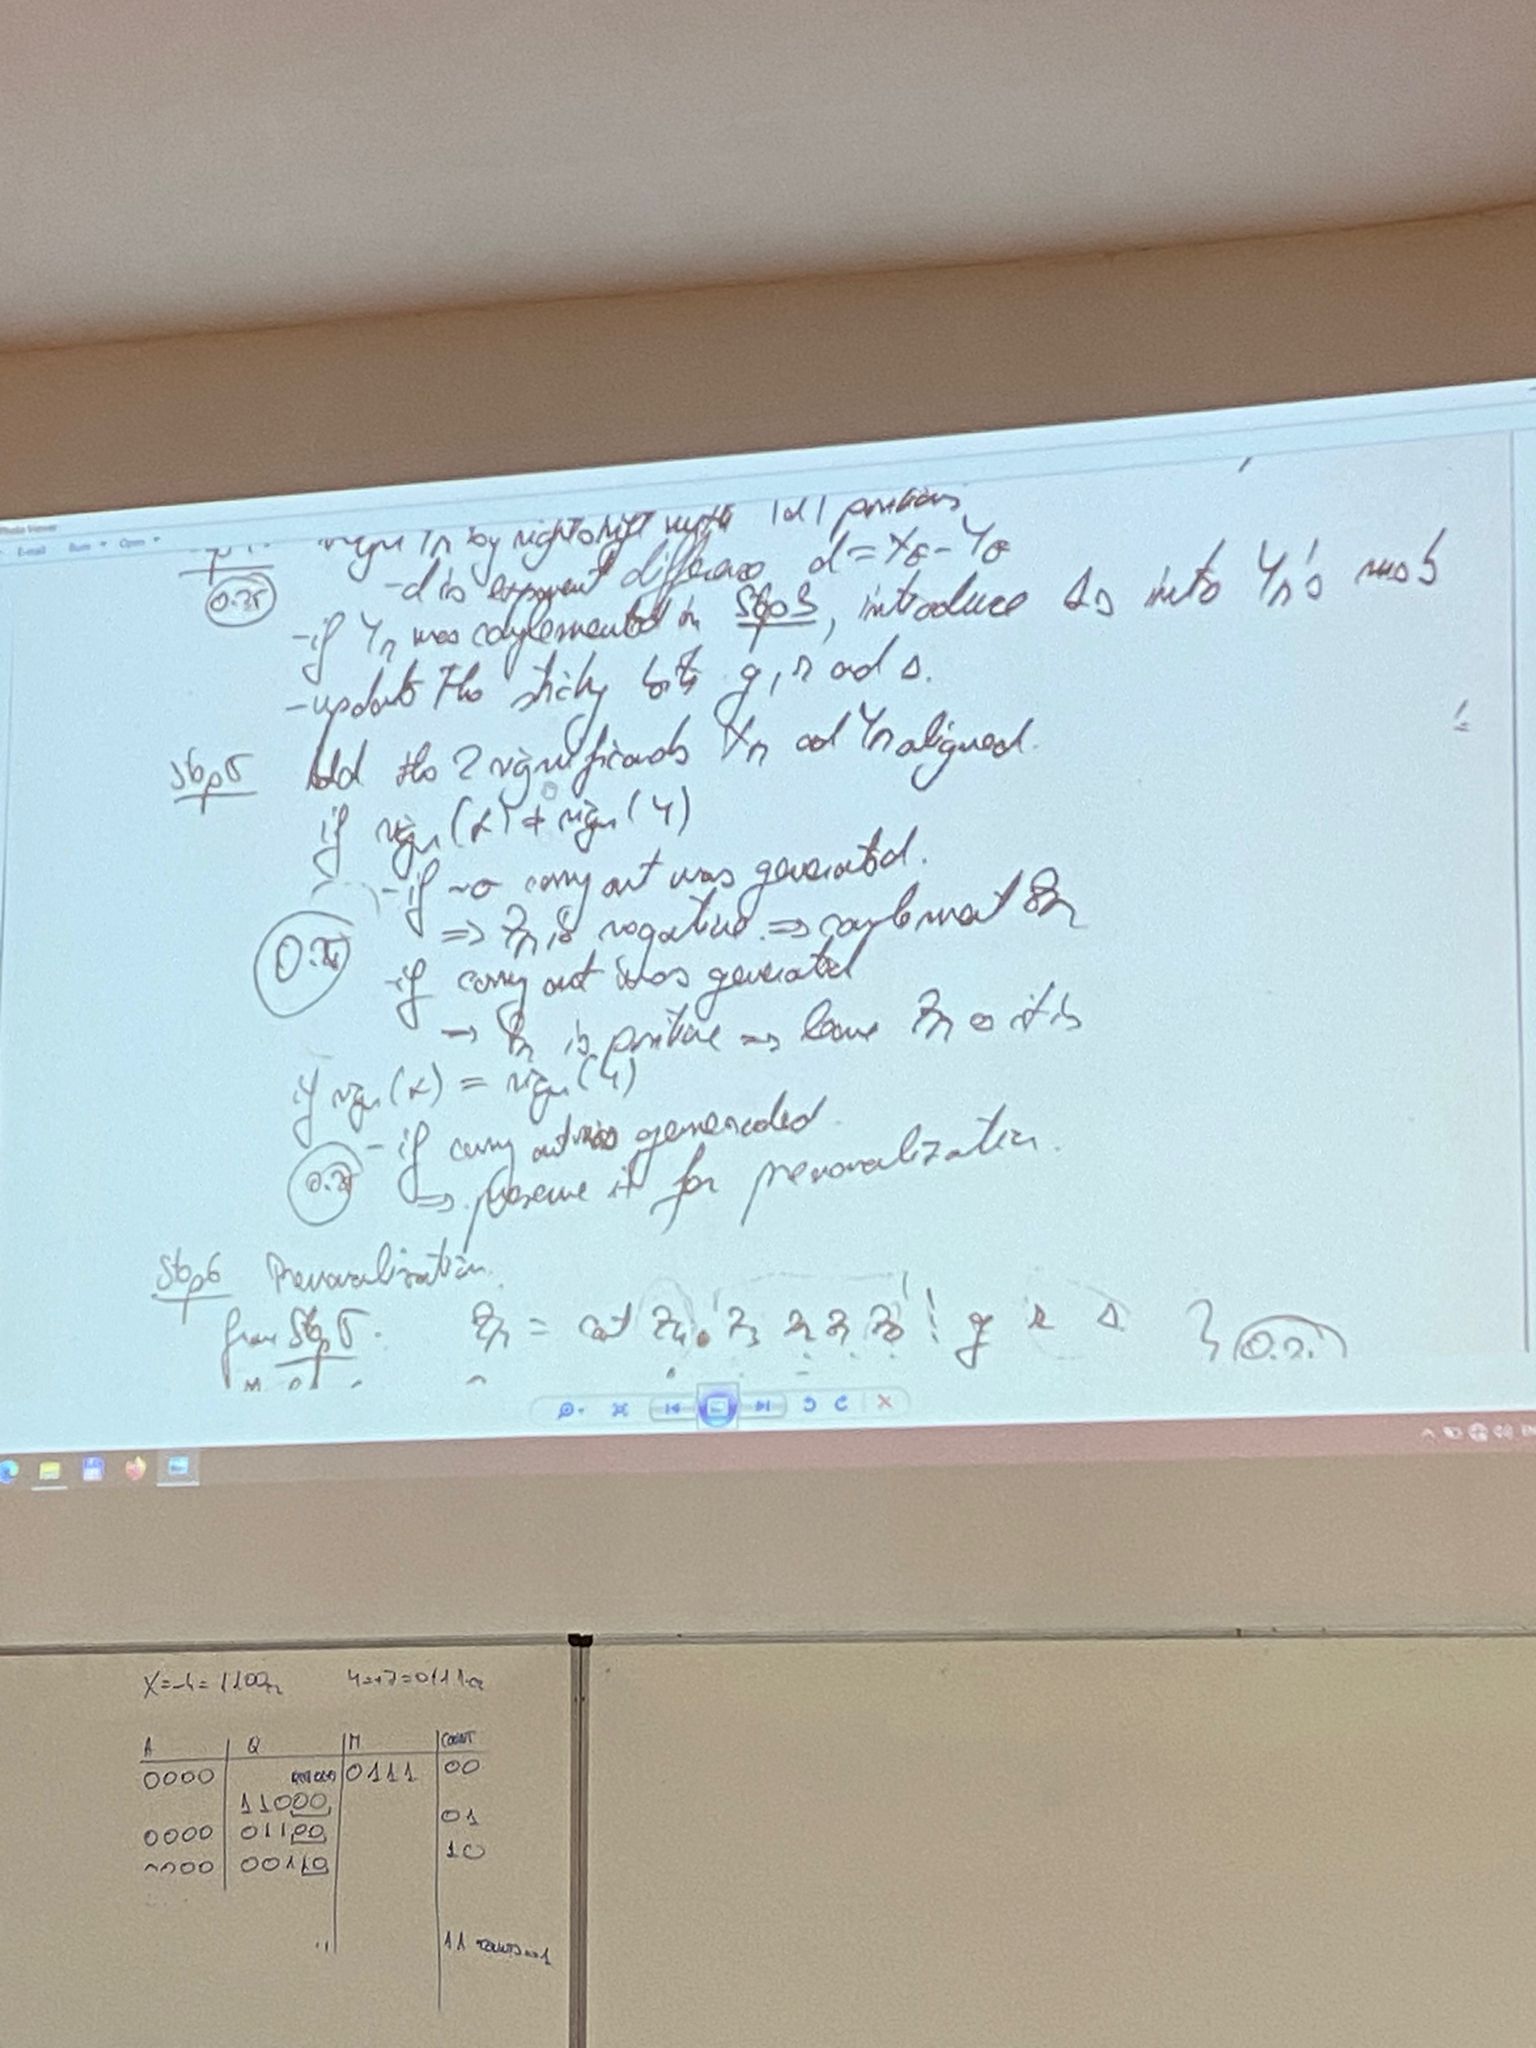 by right shift with |d| positions
0.25
- d is exponent difference d = XE - YE
- if Yn was complemented in Step 3, introduce 1s into Yn's msb
- update the sticky bits g, r and s.
Step 5 Add the 2 significands Xn and Yn aligned.
if sign(X) ≠ sign(Y)
- if no carry out was generated.
⇒ Zn is negative ⇒ complement Zn
- if carry out was generated
→ Zn is positive ⇒ leave Zn as it is
if sign(X) = sign(Y)
- if carry out was generated.
⇒ preserve it for prenormalization.
Step 6 Prenormalization
from Step 5: Zn = cout z4 . z3 z2 z1 z0 | g r s
E-mail Burn Open
X=-4=1100 Y=+7=0111
A Q M COUNT
0000 0111 00
11000
01
0000 01100
10
00110
11